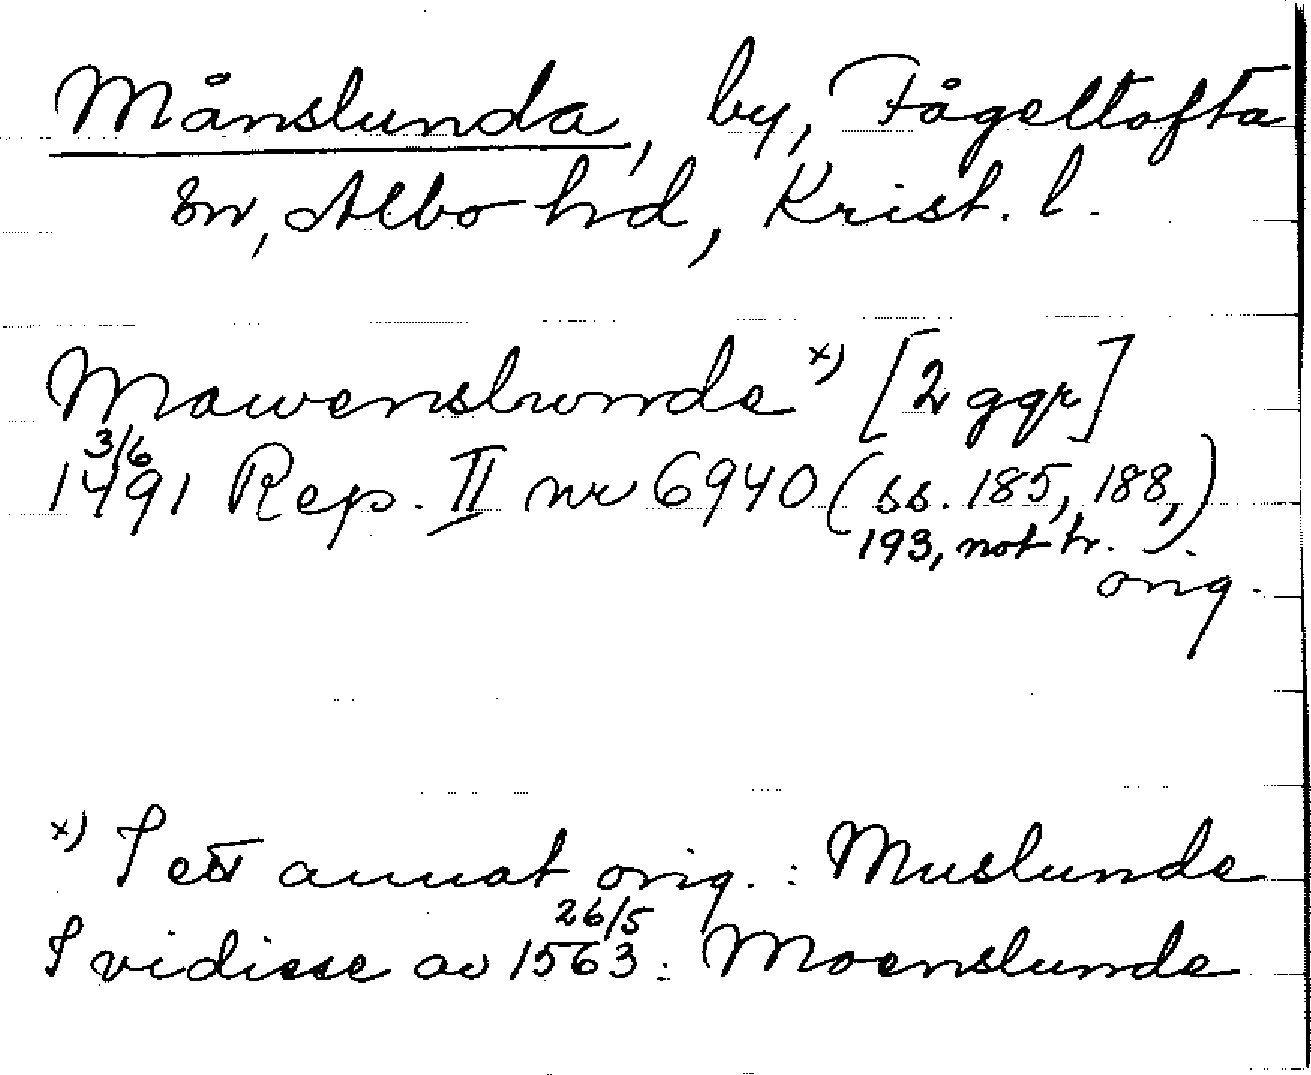 Månslunda, by, Fågeltofta
sn, Albo hd, Krist. l.
Mawenslwnde x) [2 ggr]
3/6
1491 Rep. II nr 6940 (ss. 185, 188,
193, not tr.).
orig.
x) I ett annat orig. : Muslunde
26/5
I vidisse av 1563: Moenslunde